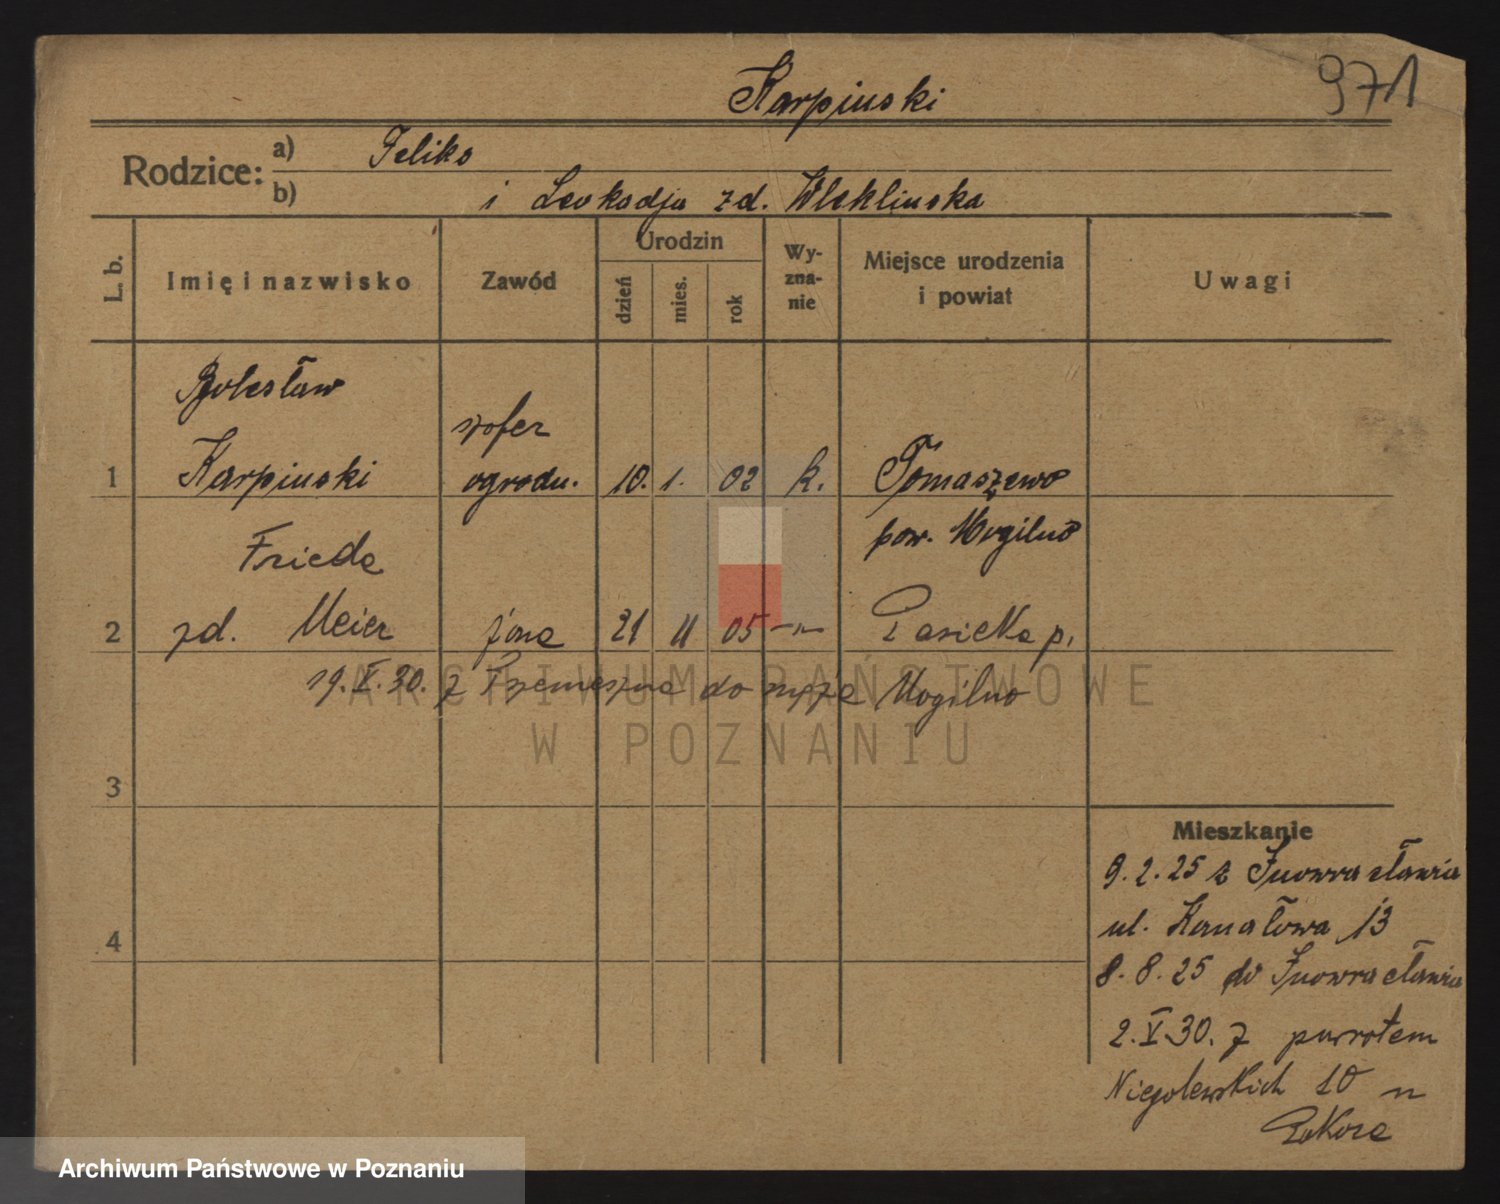 971
Karpinski
Rodzice:
a) Feliks
b) i Leokadja zd. Wleklinska
L. b.
Imię i nazwisko
Zawód
Urodzin
dzień
mies.
rok
Wy-
zna-
nie
Miejsce urodzenia
i powiat
Uwagi
Bolesław
szofer
1 Karpinski ogrodn. 10. 1. 02 k. Tomaszewo
pow. Mogilno
Frieda
2 zd. Meier żona 21 11 05 -"- Pasieka p.
19. X. 30. z do męża Mogilno
3
4
Mieszkanie
9. 2. 25 z Inowrocławia
ul. Kanałowa 13
8. 8. 25 do Inowrocławia
2. V. 30. z powrotem
Niegolewskich 10 u
ARCHIWUM PAŃSTWOWE
W POZNANIU
Archiwum Państwowe w Poznaniu